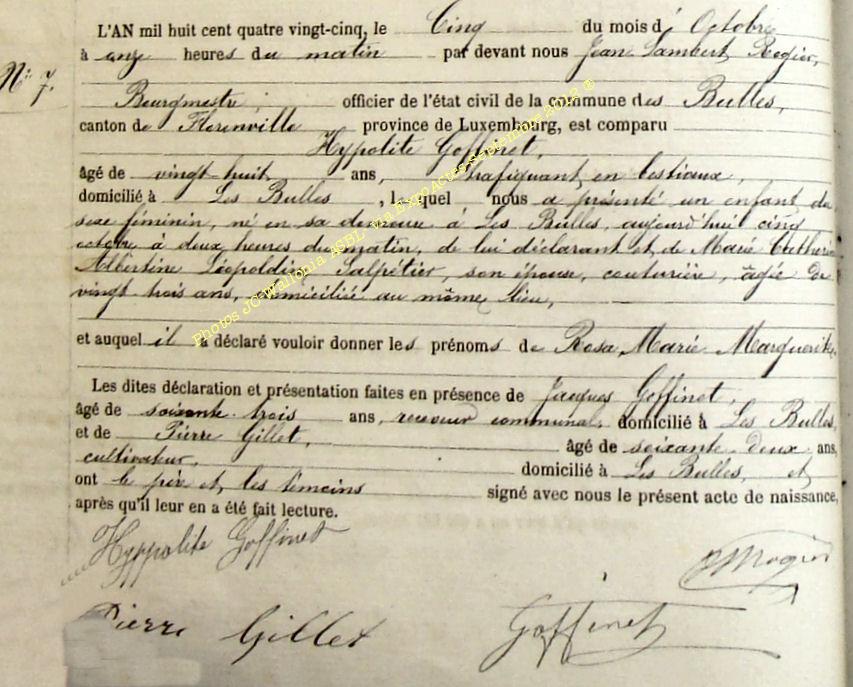 L'AN mil huit cent quatre vingt-cinq, le Cinq du mois d' Octobre
à onze heures du matin par devant nous Jean Lambert
N° 7.
Bourgmestre, officier de l'état civil de la commune des Bulles,
canton de Florenville province de Luxembourg, est comparu
Hypolite Goffinet,
âgé de vingt-huit ans, trafiquant en bestiaux,
domicilié à Les Bulles, lequel nous a présenté un enfant du
sexe féminin, né en sa demeure à Les Bulles, aujourd'hui cinq
octobre à deux heures du matin, de lui déclarant et de Marie Catherine
Albertine Léopoldine Salpétier, son épouse, couturière, âgée de
vingt trois ans, domiciliée au même lieu,
et auquel il a déclaré vouloir donner les prénoms de Rosa Marie Marguerite.
Les dites déclaration et présentation faites en présence de Jacques Goffinet,
âgé de soixante trois ans, receveur communal, domicilié à Les Bulles,
et de Pierre Gillet, âgé de soixante deux ans,
cultivateur, domicilié à Les Bulles, et
ont le père et les témoins signé avec nous le présent acte de naissance,
après qu'il leur en a été fait lecture.
Hyppolite Goffinet
Pierre Gillet Goffinet
Photos JC Wallonia ASBL via Expo Actes septembre 2012 ®